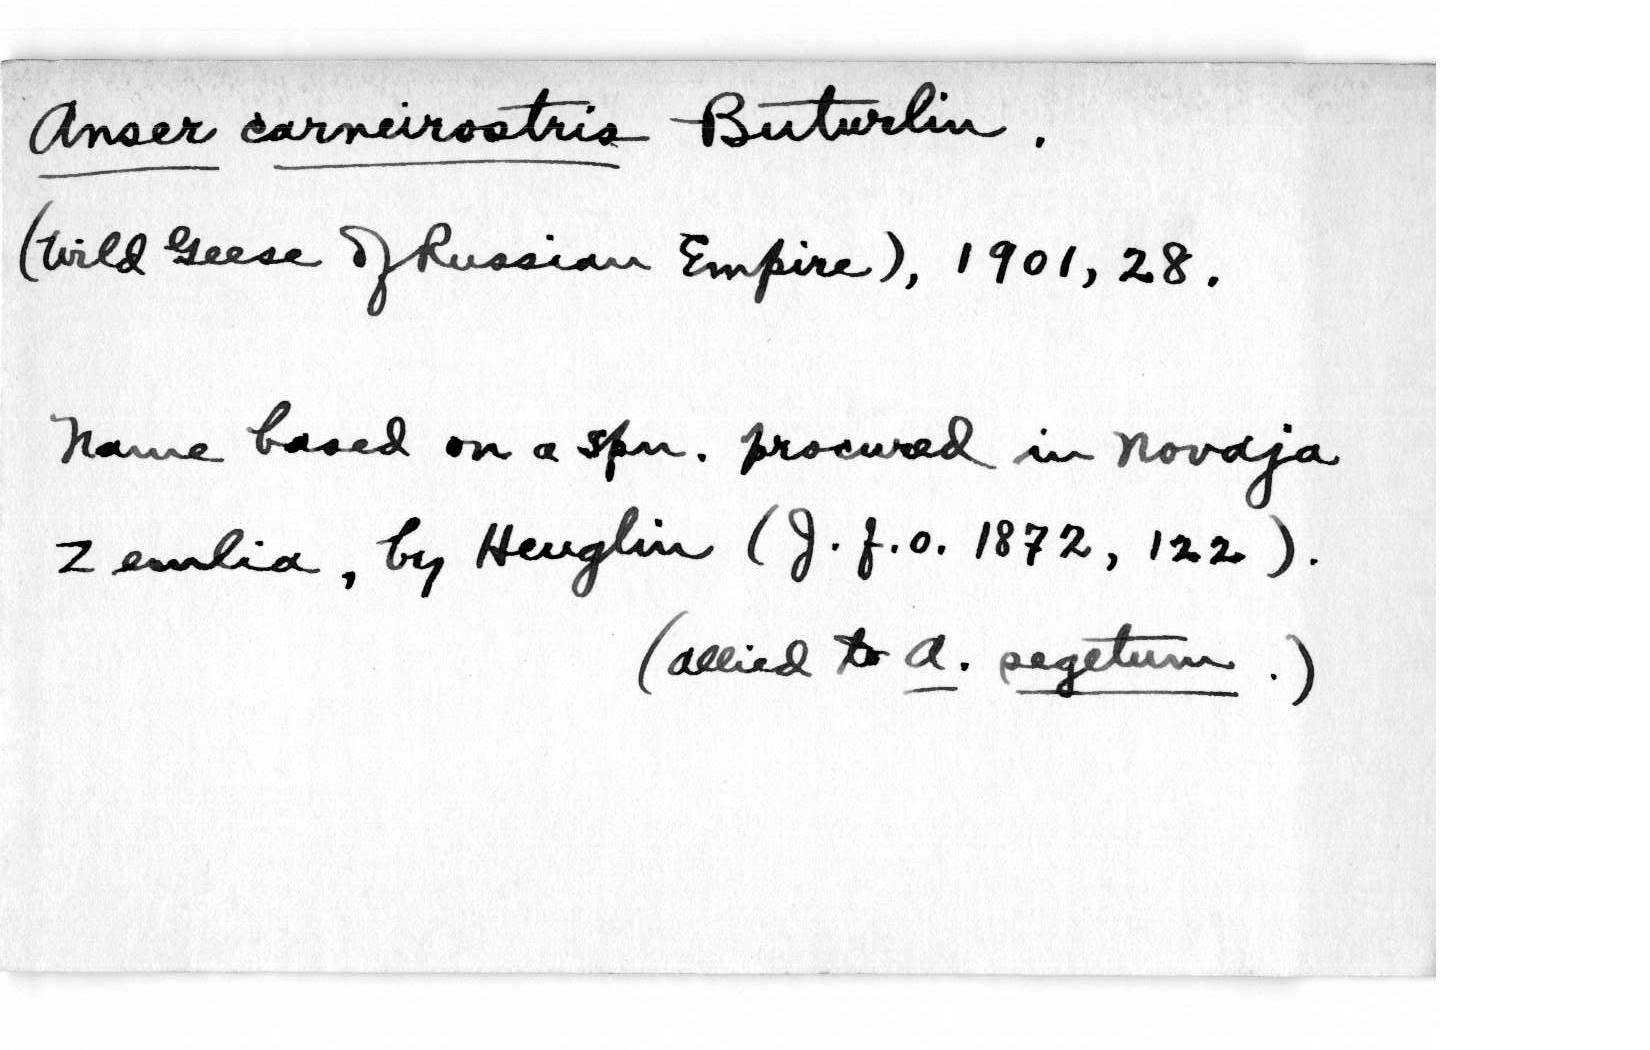 Anser carneirostris Buturlin.
(Wild Geese of Russian Empire), 1901, 28.
Name based on a spn. procured in Novaja
Zemlia, by Heuglin (J. f. O. 1872, 122).
(allied to A. segetum.)